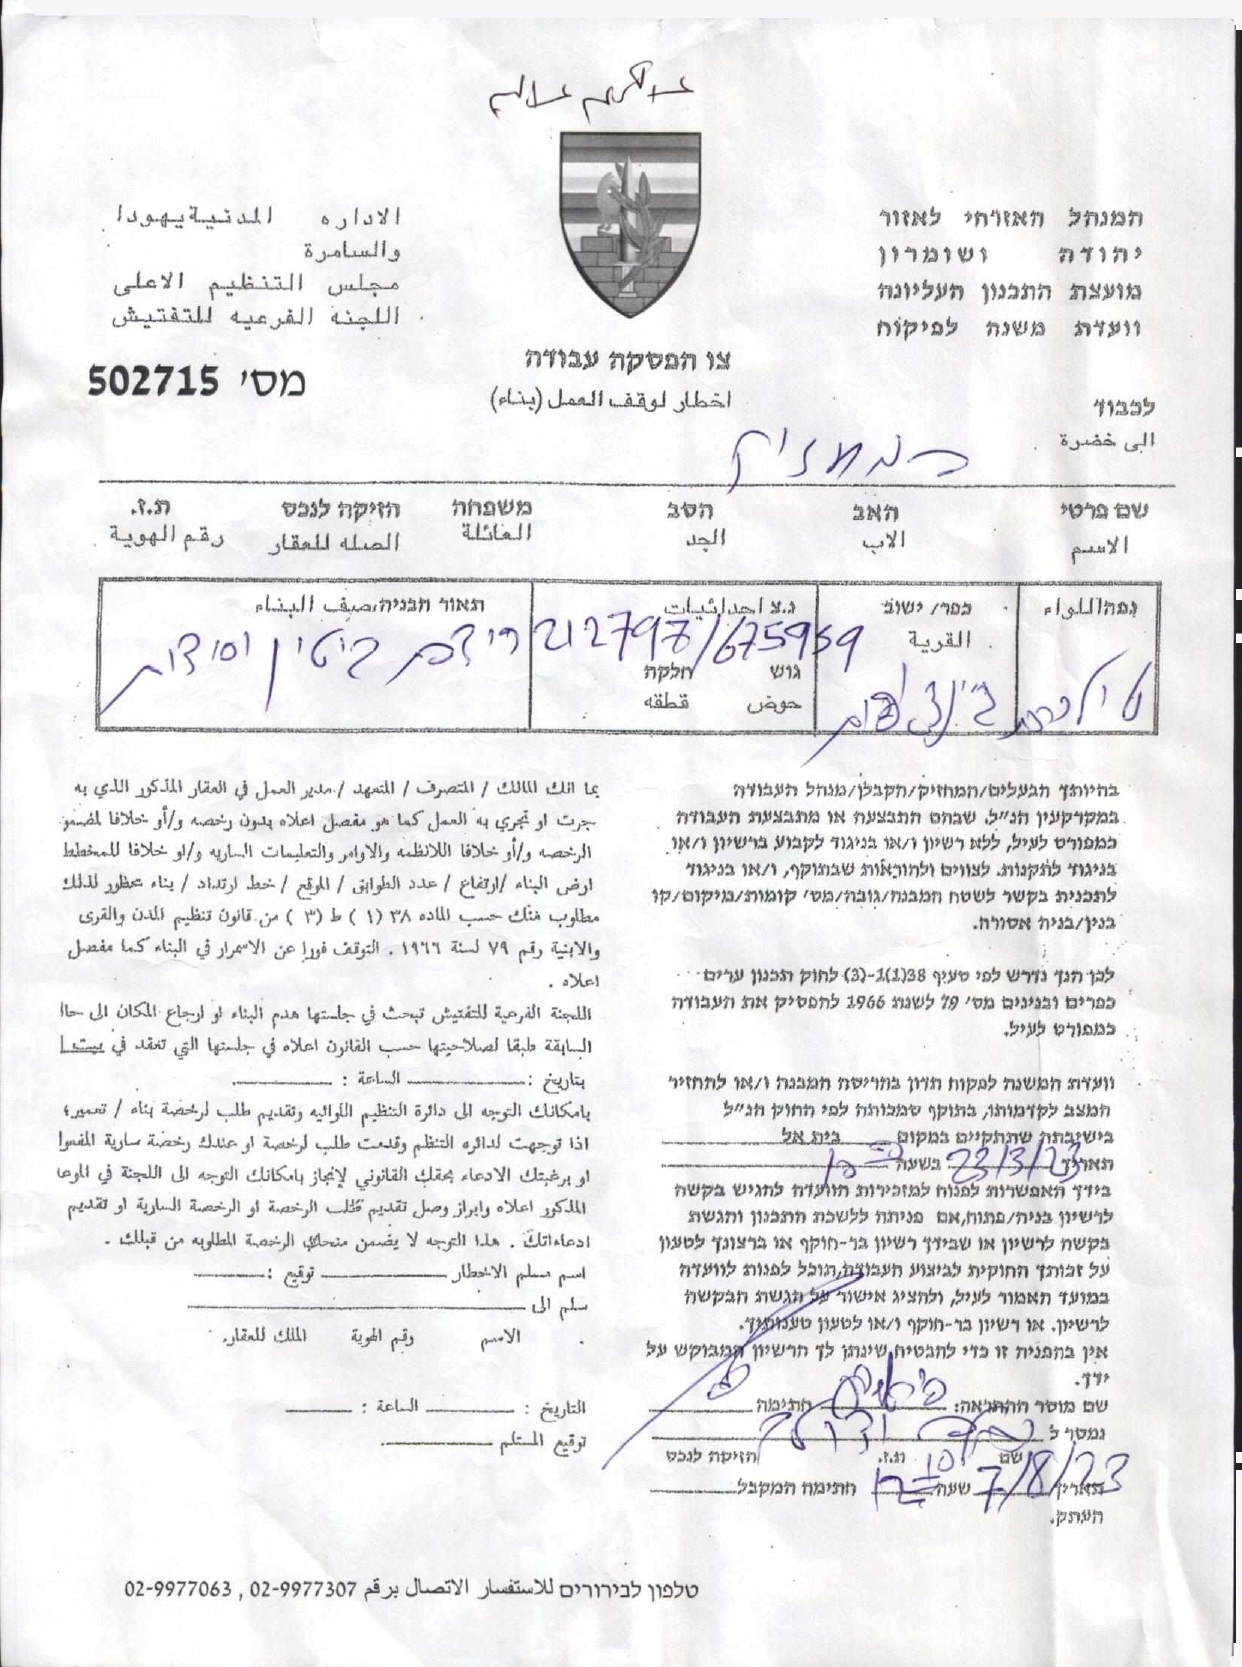 عبدالكريم عسالم
המנהל האזרחי לאזור
יהודה ושומרון
מועצת התכנון העליונה
וועדת משנה לפיקוח
الاداره المدنية يهودا
والسامرة
مجلس التنظيم الاعلى
اللجنه الفرعيه للتفتيش
צו הפסקה עבודה
اخطار لوقف العمل (بناء)
מס' 502715
לכבוד
الى خضرة
המחזיק
שם פרטי האב הסב משפחה הזיקה לנכס ת.ז.
الاسم الاب الجد العائلة الصله للعقار رقم الهوية
נפה/اللواء כפר/ ישוב נ.צ احداثيات תאור הבניה/صيف البناء
القرية
212797/675959
גוש חלקה
حوض قطقه
רצפת ביטון ויסודות
טולכרם
בהיותך הבעלים/המחזיק/הקבלן/מנהל העבודה
במקרקעין הנ"ל, שבהם התבצעה או מתבצעת העבודה
כמפורט לעיל, ללא רשיון ו/או בניגוד לקבוע ברשיון ו/או
בניגוד לתקנות. לצווים ולהוראות שבתוקף, ו/או בניגוד
לתכנית בקשר לשטח המבנה/גובה/מס' קומות/מיקום/קו
בנין/בניה אסורה.
לכן הנך נדרש לפי סעיף 38(1)-1(3) לחוק תכנון ערים
כפרים ובנינים מס' 79 לשנת 1966 להפסיק את העבודה
כמפורט לעיל.
וועדת המשנה לפקוח תדון בהריסת המבנה ו/או להחזיר
המצב לקדמותו, בתוקף סמכותה לפי החוק הנ"ל
בישיבתה שתתקיים במקום בית אל
תאריך 23/3/23 בשעה
בידך האפשרות לפנות למזכירות הוועדה להגיש בקשה
לרשיון בניה/פתוח,אם פניתה ללשכת התכנון והגשת
בקשה לרשיון או שבידך רשיון בר-חוקף או ברצונך לטעון
על זכותך החוקית לביצוע העבודה,תוכל לפנות לוועדה
במועד האמור לעיל, ולהציג אישור על הגשת הבקשה
לרשיון. או רשיון בר-חוקף ו/או לטעון טענותיך.
אין בהפניה זו כדי להבטיח שינתן לך הרשיון המבוקש על
ידך.
שם מוסר ההתראה: חתימה
נמסר ל
שם ת.ז. הזיקה לנכס
תאריך 7/8/23 שעה חתימה המקבל
העתק.
بما انك المالك / المتصرف / المتعهد / مدير العمل في العقار المذكور الذي به
جرت او تجري به العمل كما هو مفصل اعلاه بدون رخصه و/أو خلافا لمضمو
الرخصه و/أو خلافا اللانظمه والاوامر والتعليمات الساريه و/او خلافا للمخطط
ارض البناء /ارتفاع / عدد الطوابق / الموقع / خط ارتداد / بناء محظور لذلك
مطلوب منك حسب الماده ٣٨ (١ ) ط (٣ ) من قانون تنظيم المدن والقرى
والابنية رقم ٧٩ لسنة ١٩٦٦ . التوقف فورا عن الاسمرار في البناء كما مفصل
اعلاه .
اللجنة الفرعية للتفتيش تبحث في جلستها هدم البناء او ارجاع المكان الى حاا
السابقة طبقا لصلاحيتها حسب القانون اعلاه في جلستها التي تعقد في بيت ا
بتاريخ : الساعة :
بامكانك التوجه الى دائرة التنظيم اللوائيه وتقديم طلب لرخصة بناء / تعمير؛
اذا توجهت لدائره التنظم وقدمت طلب لرخصة او عندك رخصة سارية المفعوا
او برغبتك الادعاء بحقك القانوني لإنجاز بامكانك التوجه الى اللجنة في الموعا
المذكور اعلاه وابراز وصل تقديم طلب الرخصة او الرخصة السارية او تقديم
ادعاءاتك . هذا التوجه لا يضمن منحك الرخصة المطلوبه من قبلك .
اسم مسلم الاخطار توقيع :
سلم الى
الاسم رقم الهوية الملك للعقار.
التاريخ : الساعة :
توقيع المستلم
טלפון לבירורים للاستفسار الاتصال برقم 02-9977307 , 02-9977063